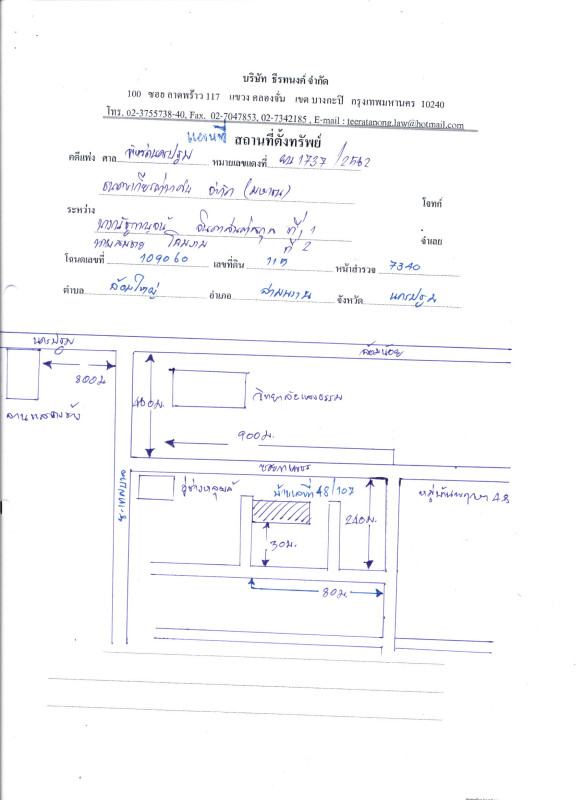 บริษัท ธีรทนงค์ จำกัด
100 ซอย ลาดพร้าว 117 แขวง คลองจั่น เขต บางกะปิ กรุงเทพมหานคร 10240
โทร. 02-3755738-40, Fax. 02-7047853, 02-7342185 , E-mail : teeratanong.law@hotmail.com
แผนที่ สถานที่ตั้งทรัพย์
คดีแพ่ง ศาล จังหวัดนครปฐม หมายเลขแดงที่ ผบ 1737 / 2562
ธนาคารเกียรตินาคิน จำกัด (มหาชน) โจทก์
ระหว่าง
ที่ 1
ที่ 2 จำเลย
โฉนดเลขที่ 109060 เลขที่ดิน 115 หน้าสำรวจ 7340
ตำบล อ้อมใหญ่ อำเภอ สามพราน จังหวัด นครปฐม
นครปฐม
อ้อมน้อย
800ม
400ม.
วิทยาลัยทองธรรม
900ม.
ซ.เทศบาล
บ้านเลขที่ 48/107
240ม.
30ม.
80ม